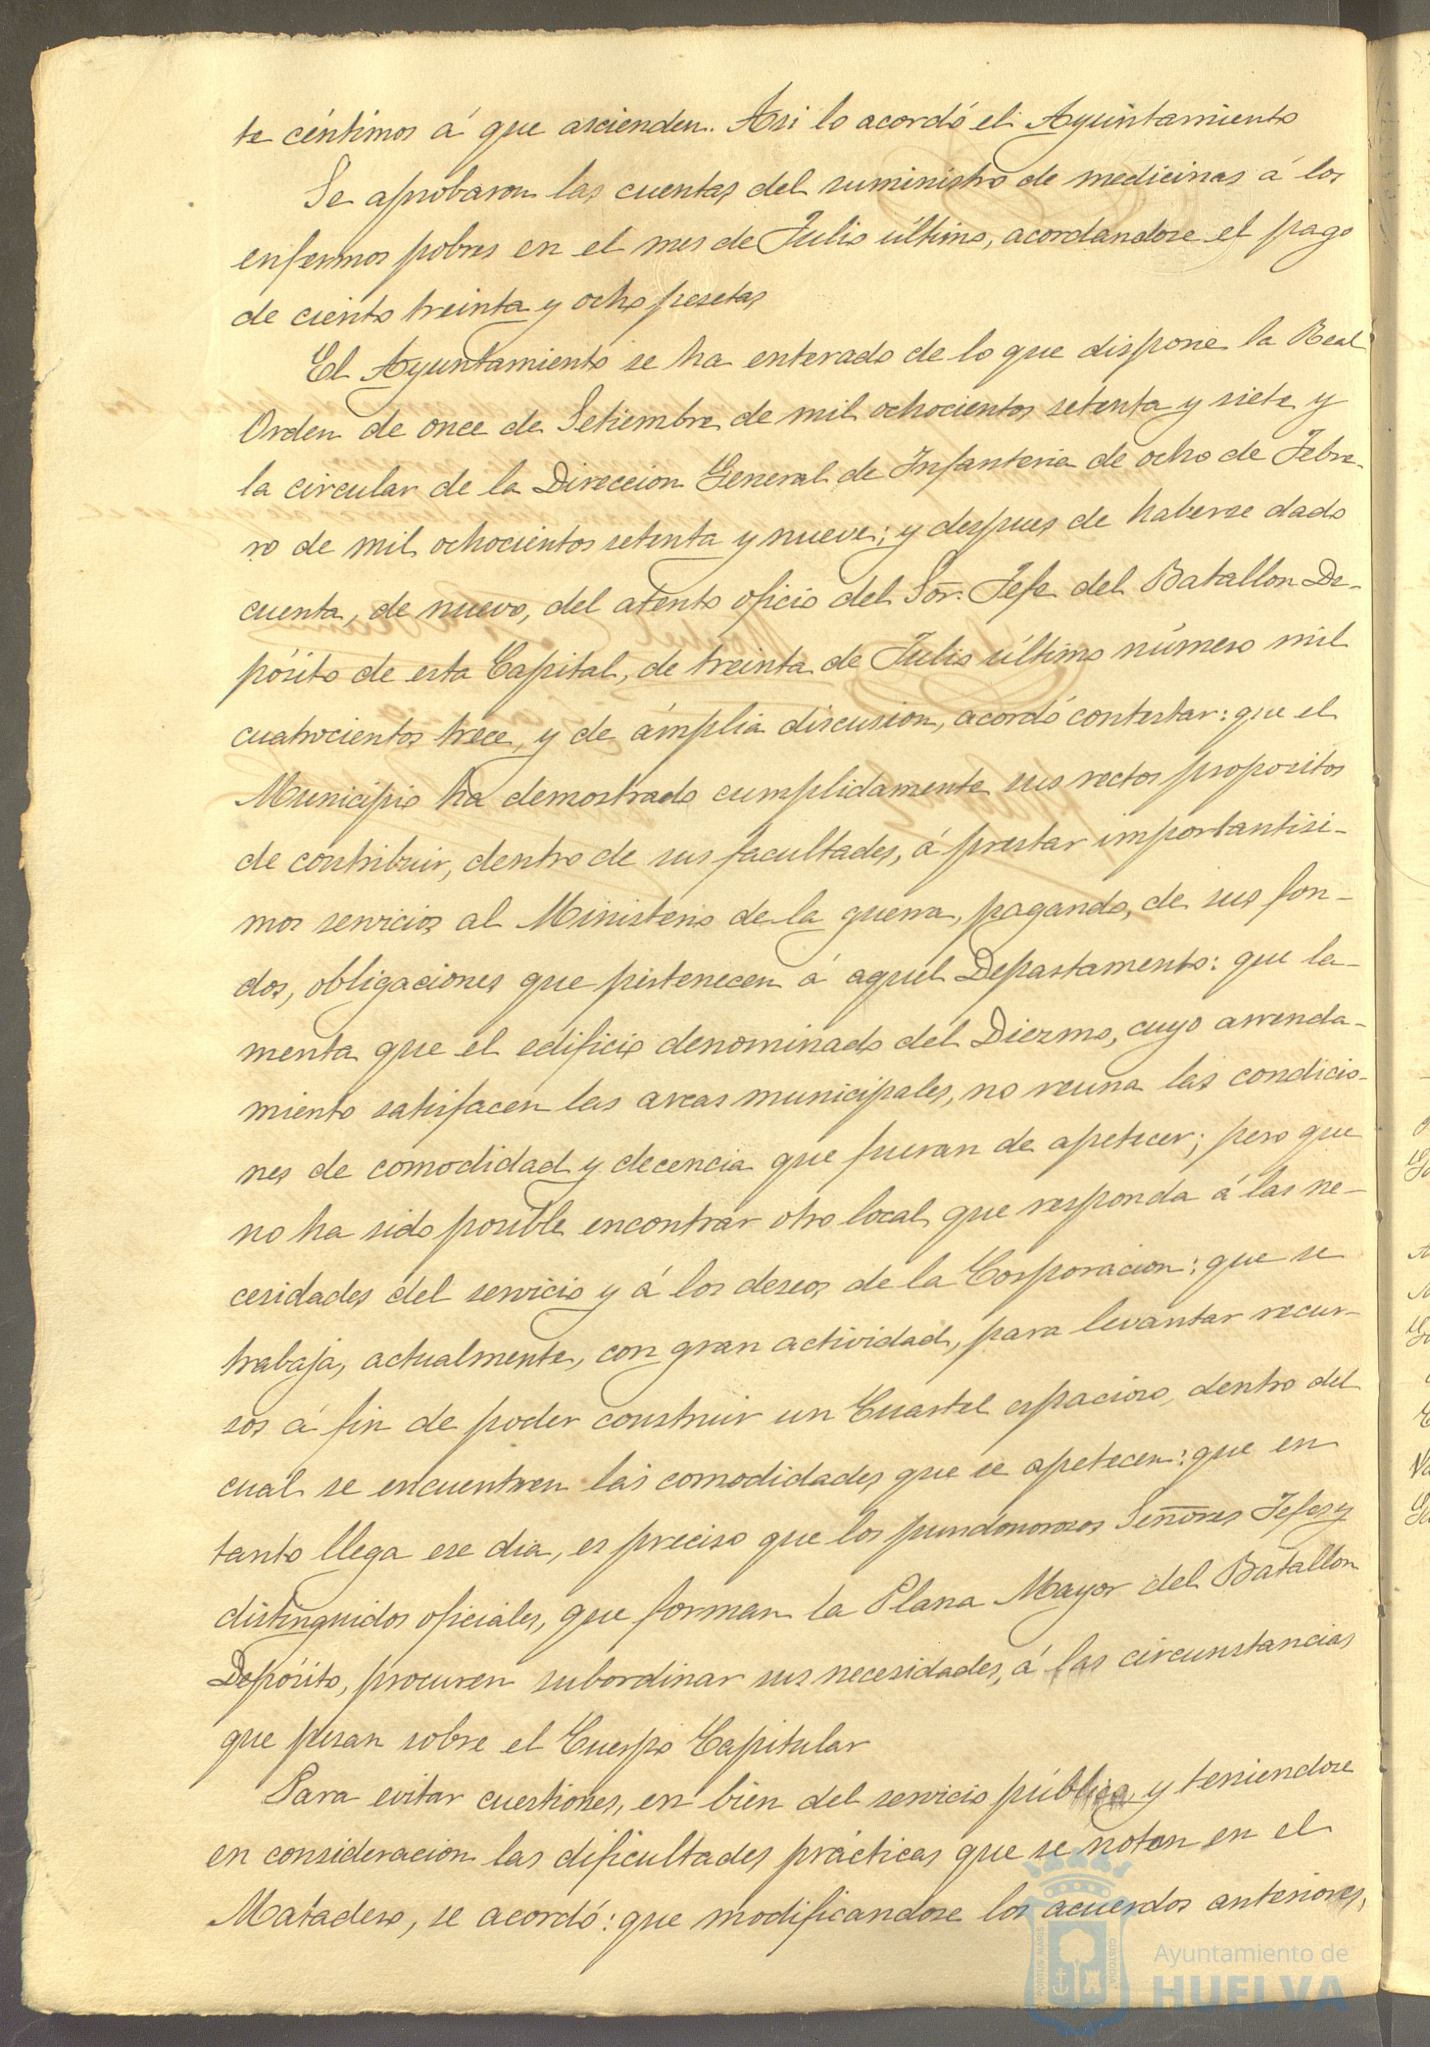 te céntimos á que ascienden. Asi lo acordó el Ayuntamiento
Se aprobaron las cuentas del suministro de medicinas á los
enfermos pobres en el mes de Julio último, acordandose el pago
de ciento treinta y ocho pesetas
El Ayuntamiento se ha enterado de lo que dispone la Real
Orden de once de Setiembre de mil ochocientos setenta y siete y
la circular de la Direccion General de Infanteria de ocho de Febre-
ro de mil ochocientos setenta y nueve; y despues de haberse dado
cuenta, de nuevo, del atento oficio del Sor. Jefe del Batallon De-
pósito de esta Capital, de treinta de Julio último número mil
cuatrocientos trece, y de ámplia discusion, acordó contestar: que el
Municipio ha demostrado cumplidamente sus rectos propositos
de contribuir, dentro de sus facultades, á prestar importantisi-
mos servicios al Ministerio de la guerra, pagando, de sus fon-
dos, obligaciones que pertenecen á aquel Departamento: que la-
menta que el edificio denominado del Diezmo, cuyo arrenda-
miento satisfacen las arcas municipales, no reuna las condicio-
nes de comodidad y decencia que fueran de apetecer; pero que
no ha sido posible encontrar otro local que responda á las ne-
cesidades del servicio y á los deseos de la Corporacion: que se
trabaja, actualmente, con gran actividad, para levantar recur-
sos á fin de poder construir un Cuartel espacioso, dentro del
cual se encuentren las comodidades que se apetecen: que en
tanto llega ese dia, es preciso que los pundonorosos Señores Jefes y
distinguidos oficiales, que forman la Plana Mayor del Batallon
Depósito, procuren subordinar sus necesidades, á las circunstancias
que pesan sobre el Cuerpo Capitular
Para evitar cuestiones, en bien del servicio público y teniendose
en consideracion las dificultades prácticas que se notan en el
Matadero, se acordó: que modificandose los acuerdos anteriores,
Ayuntamiento de
HUELVA